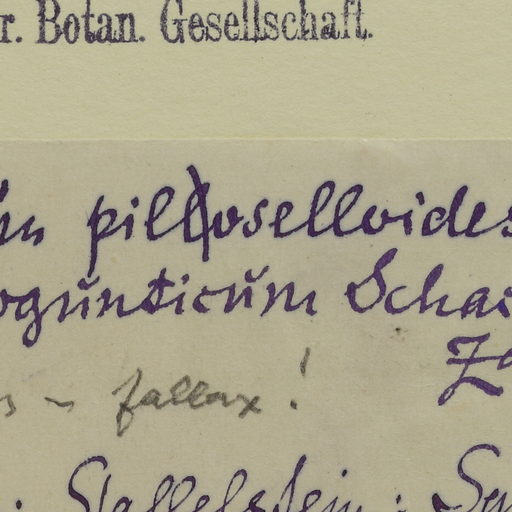 r. Botan. Gesellschaft.
pilloselloides
ogunticum Schac
Za
s - fallax!
. Staffelstein: Sü